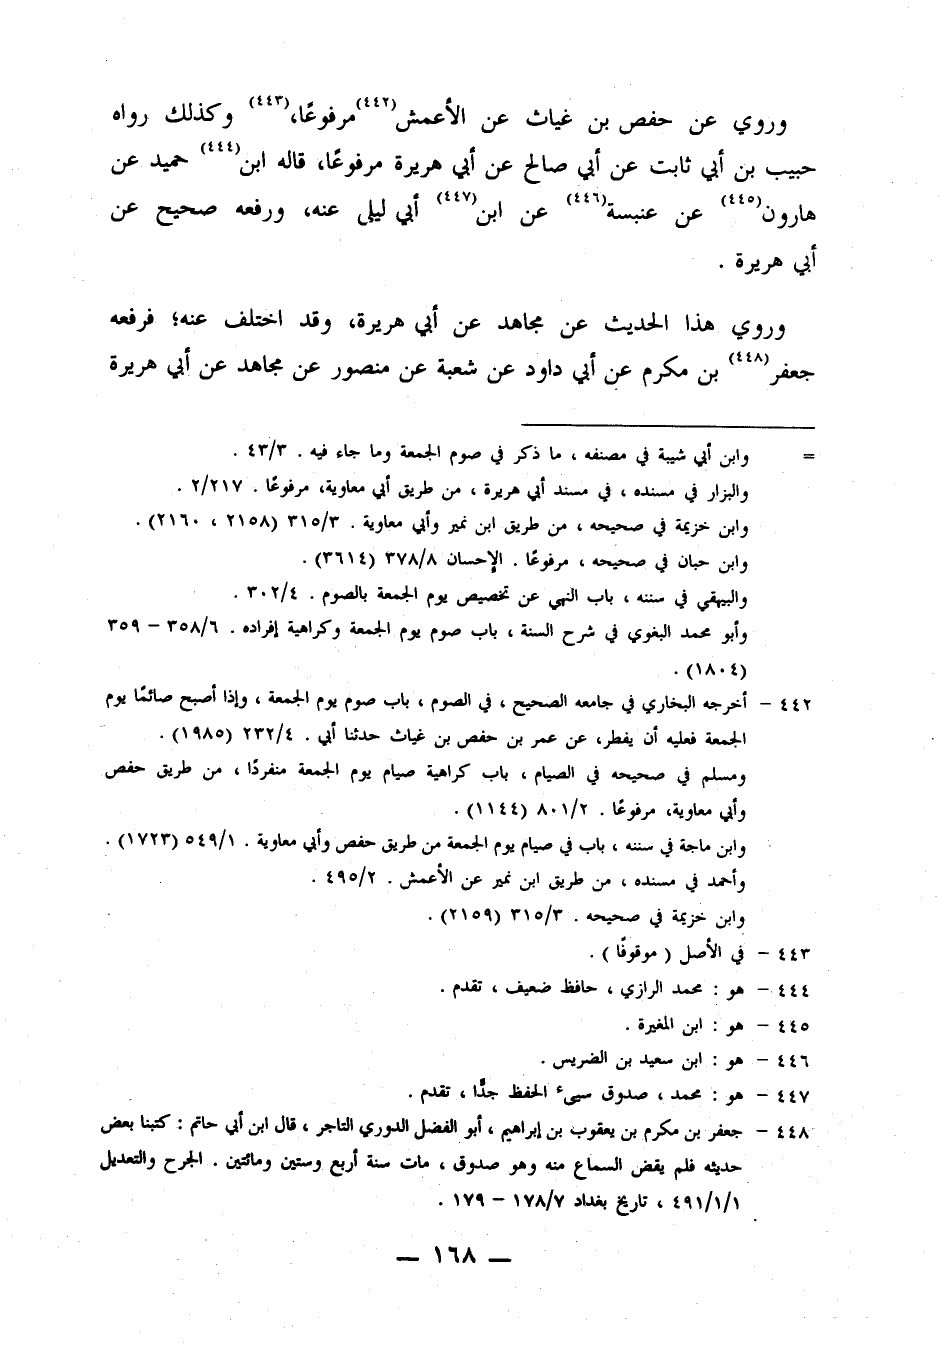 وروي عن حفص بن غياث عن الأعمش(٤٤٢) مرفوعًا،(٤٤٣) وكذلك رواه
حبيب بن أبي ثابت عن أبي صالح عن أبي هريرة مرفوعًا، قاله ابن(٤٤٤) حميد عن
هارون(٤٤٥) عن عنبسة(٤٤٦) عن ابن(٤٤٧) أبي ليلى عنه، ورفعه صحيح عن
أبي هريرة .
وروي هذا الحديث عن مجاهد عن أبي هريرة، وقد اختلف عنه؛ فرفعه
جعفر(٤٤٨) بن مكرم عن أبي داود عن شعبة عن منصور عن مجاهد عن أبي هريرة
= وابن أبي شيبة في مصنفه ، ما ذكر في صوم الجمعة وما جاء فيه . ٤٣/٣ .
والبزار في مسنده ، في مسند أبي هريرة ، من طريق أبي معاوية، مرفوعًا . ٢/٢١٧ .
وابن خزيمة في صحيحه ، من طريق ابن نمير وأبي معاوية . ٣١٥/٣ (٢١٥٨ ، ٢١٦٠) .
وابن حبان في صحيحه ، مرفوعًا . الإحسان ٣٧٨/٨ (٣٦١٤) .
والبيهقي في سننه ، باب النهي عن تخصيص يوم الجمعة بالصوم . ٣٠٢/٤ .
وأبو محمد البغوي في شرح السنة ، باب صوم يوم الجمعة وكراهية إفراده . ٣٥٨/٦ – ٣٥٩
(١٨٠٤) .
٤٤٢ – أخرجه البخاري في جامعه الصحيح ، في الصوم ، باب صوم يوم الجمعة ، وإذا أصبح صائمًا يوم
الجمعة فعليه أن يفطر، عن عمر بن حفص بن غياث حدثنا أبي . ٢٣٢/٤ (١٩٨٥) .
ومسلم في صحيحه في الصيام ، باب كراهية صيام يوم الجمعة منفردًا ، من طريق حفص
وأبي معاوية، مرفوعًا . ٨٠١/٢ (١١٤٤) .
وابن ماجة في سننه ، باب في صيام يوم الجمعة من طريق حفص وأبي معاوية . ٥٤٩/١ (١٧٢٣) .
وأحمد في مسنده ، من طريق ابن نمير عن الأعمش . ٤٩٥/٢ .
وابن خزيمة في صحيحه . ٣١٥/٣ (٢١٥٩) .
٤٤٣ – في الأصل ( موقوفًا ) .
٤٤٤ – هو : محمد الرازي ، حافظ ضعيف ، تقدم .
٤٤٥ – هو : ابن المغيرة .
٤٤٦ – هو : ابن سعيد بن الضريس .
٤٤٧ – هو : محمد ، صدوق سيىء الحفظ جدًّا ، تقدم .
٤٤٨ – جعفر بن مكرم بن يعقوب بن إبراهيم ، أبو الفضل الدوري التاجر ، قال ابن أبي حاتم : كتبنا بعض
حديثه فلم يقض السماع منه وهو صدوق ، مات سنة أربع وستين ومائتين . الجرح والتعديل
٤٩١/١/١ ، تاريخ بغداد ١٧٨/٧ – ١٧٩ .
— ١٦٨ —